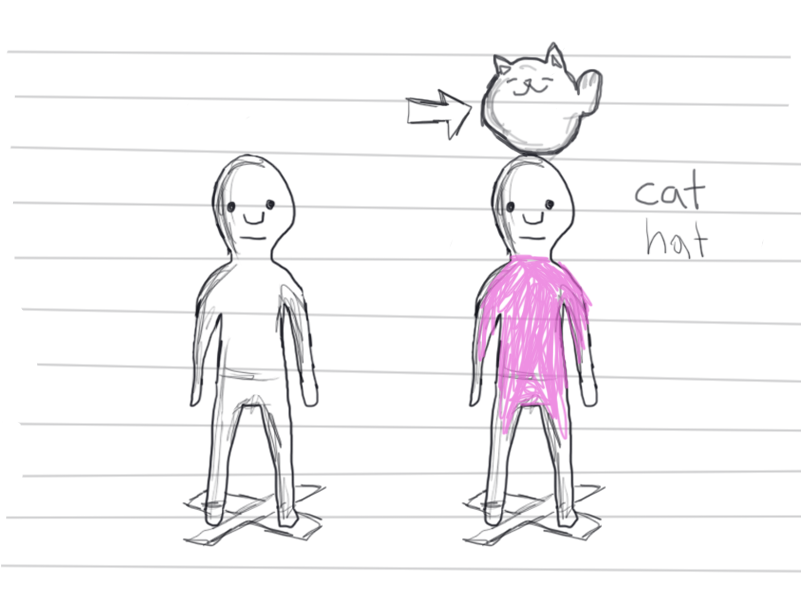 cat
hat